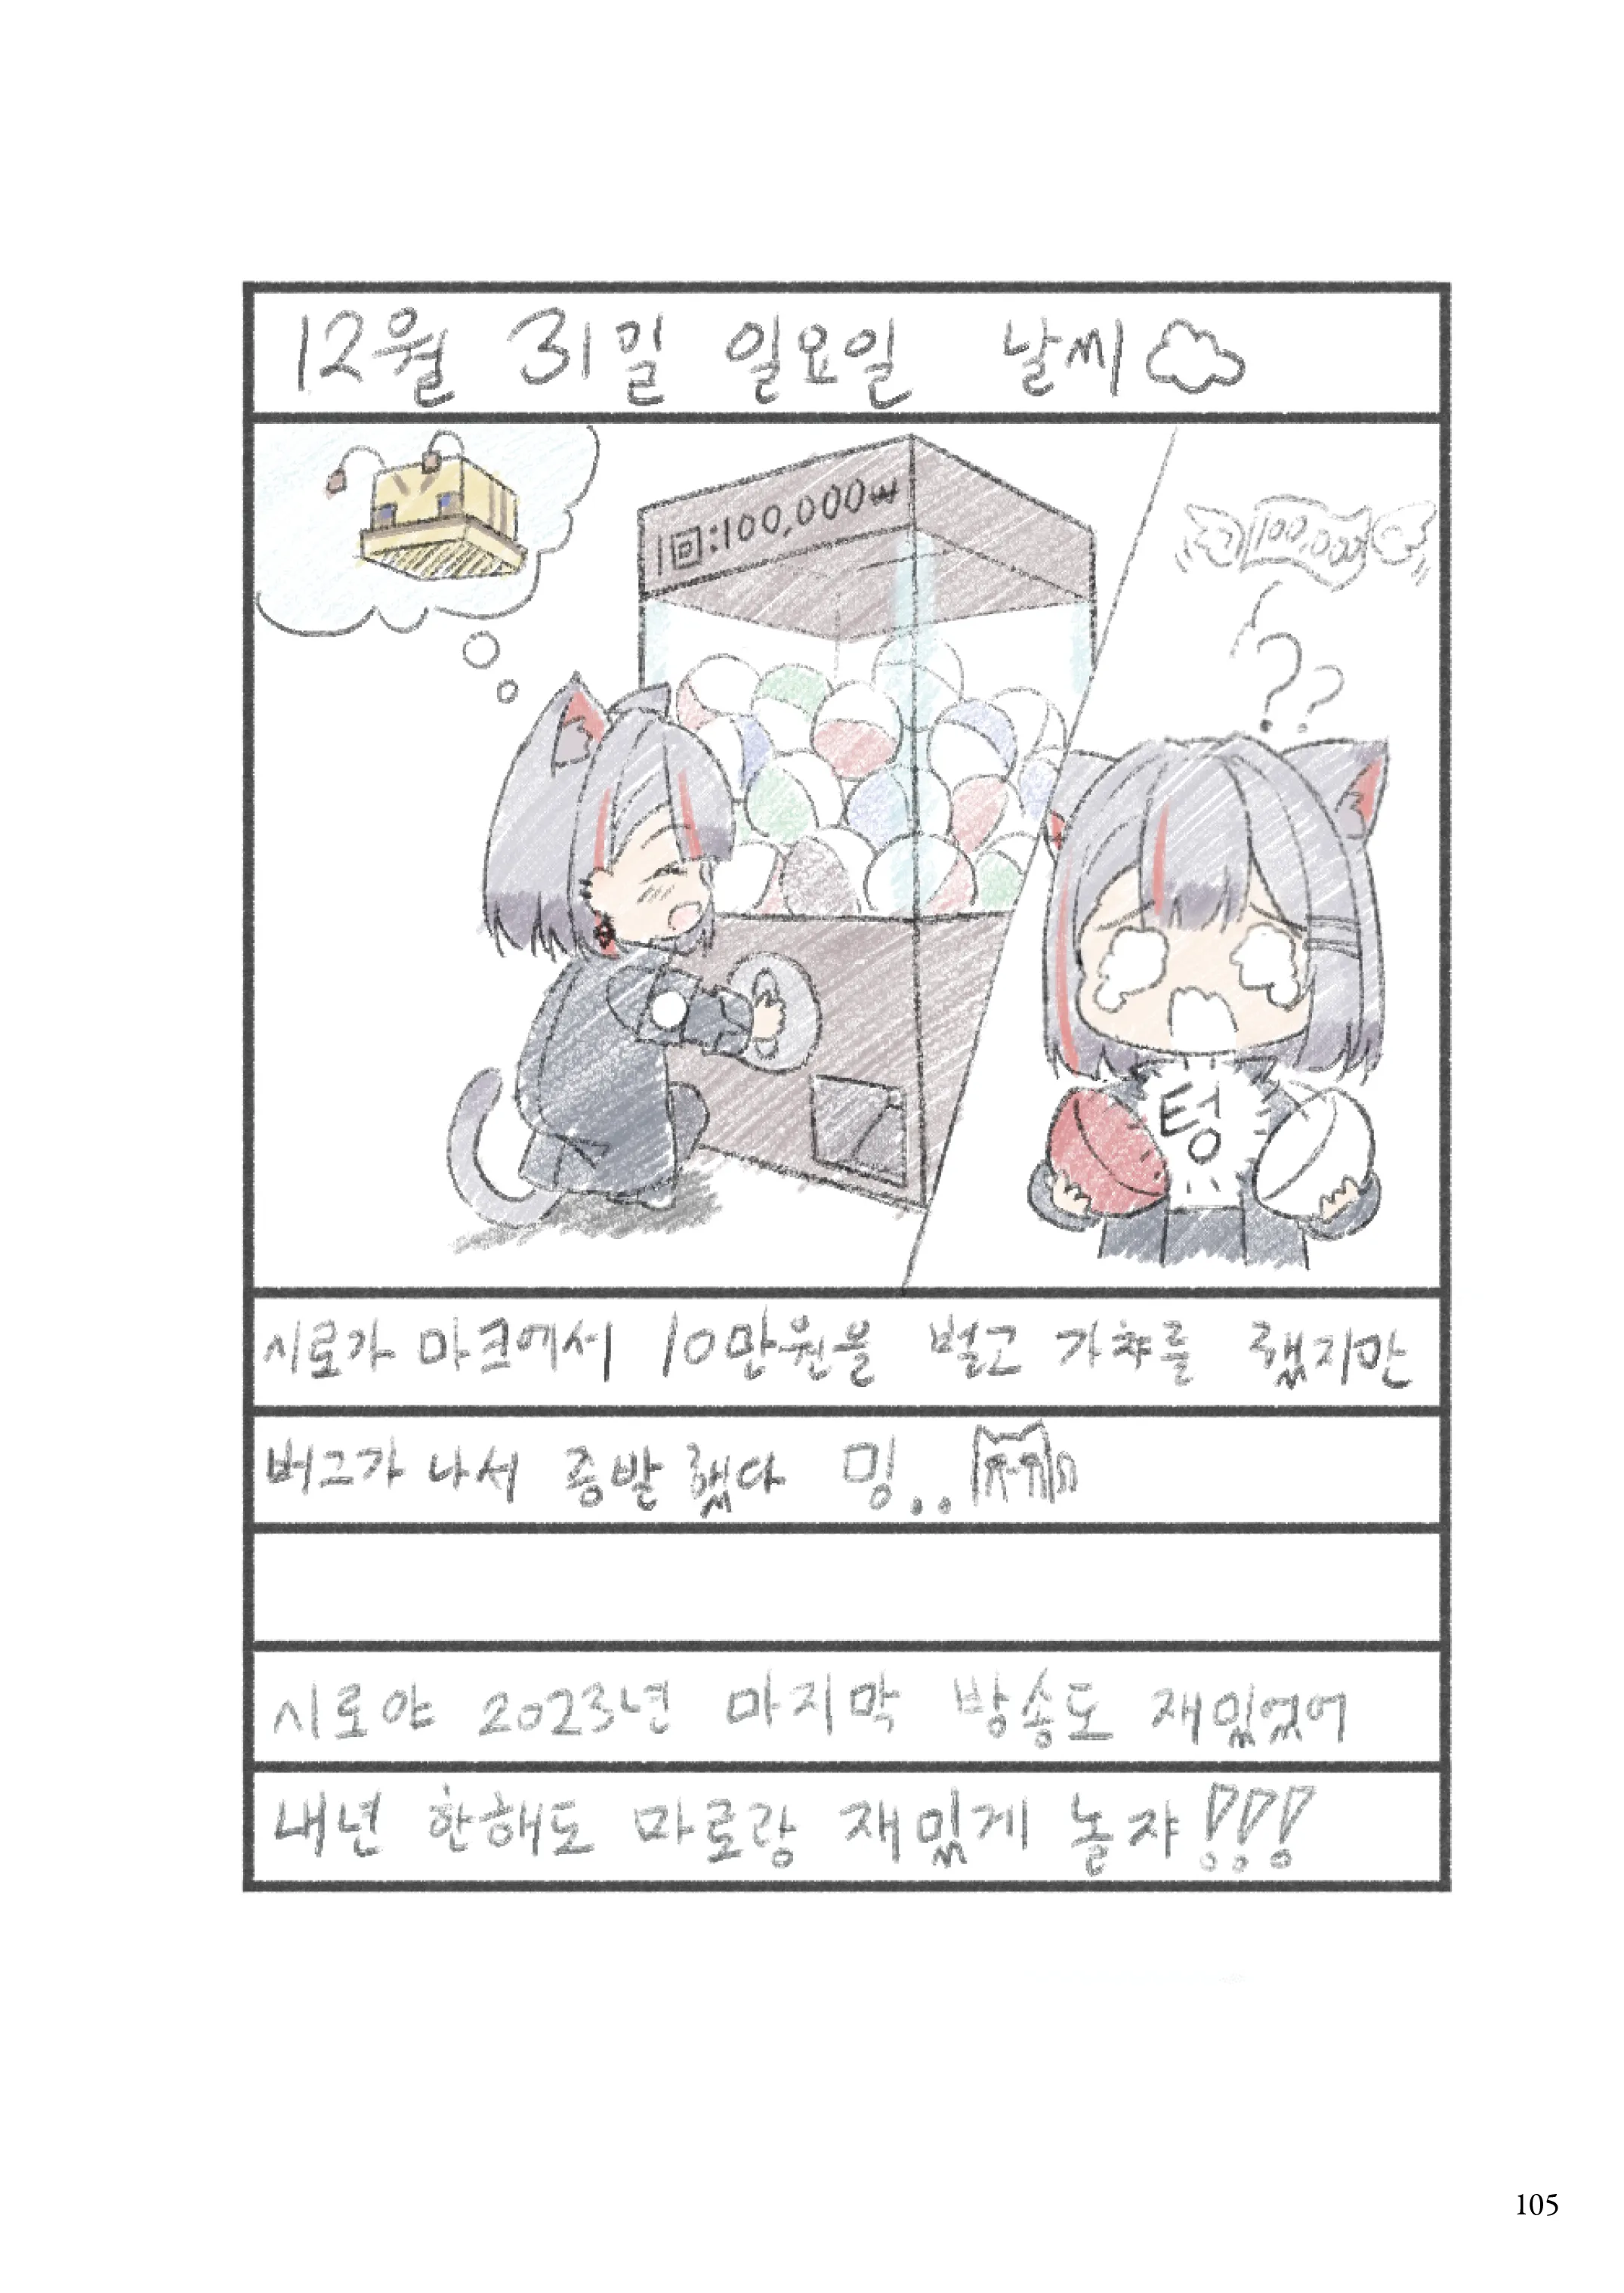 12월 31일 일요일 날씨
1回:100,000₩
100,000
??
텅
시로가 마크에서 10만원을 벌고 가챠를 했지만
버그가 나서 증발했다 밍..
시로야 2023년 마지막 방송도 재밌었어
내년 한해도 마로랑 재밌게 놀쟈!!!
105